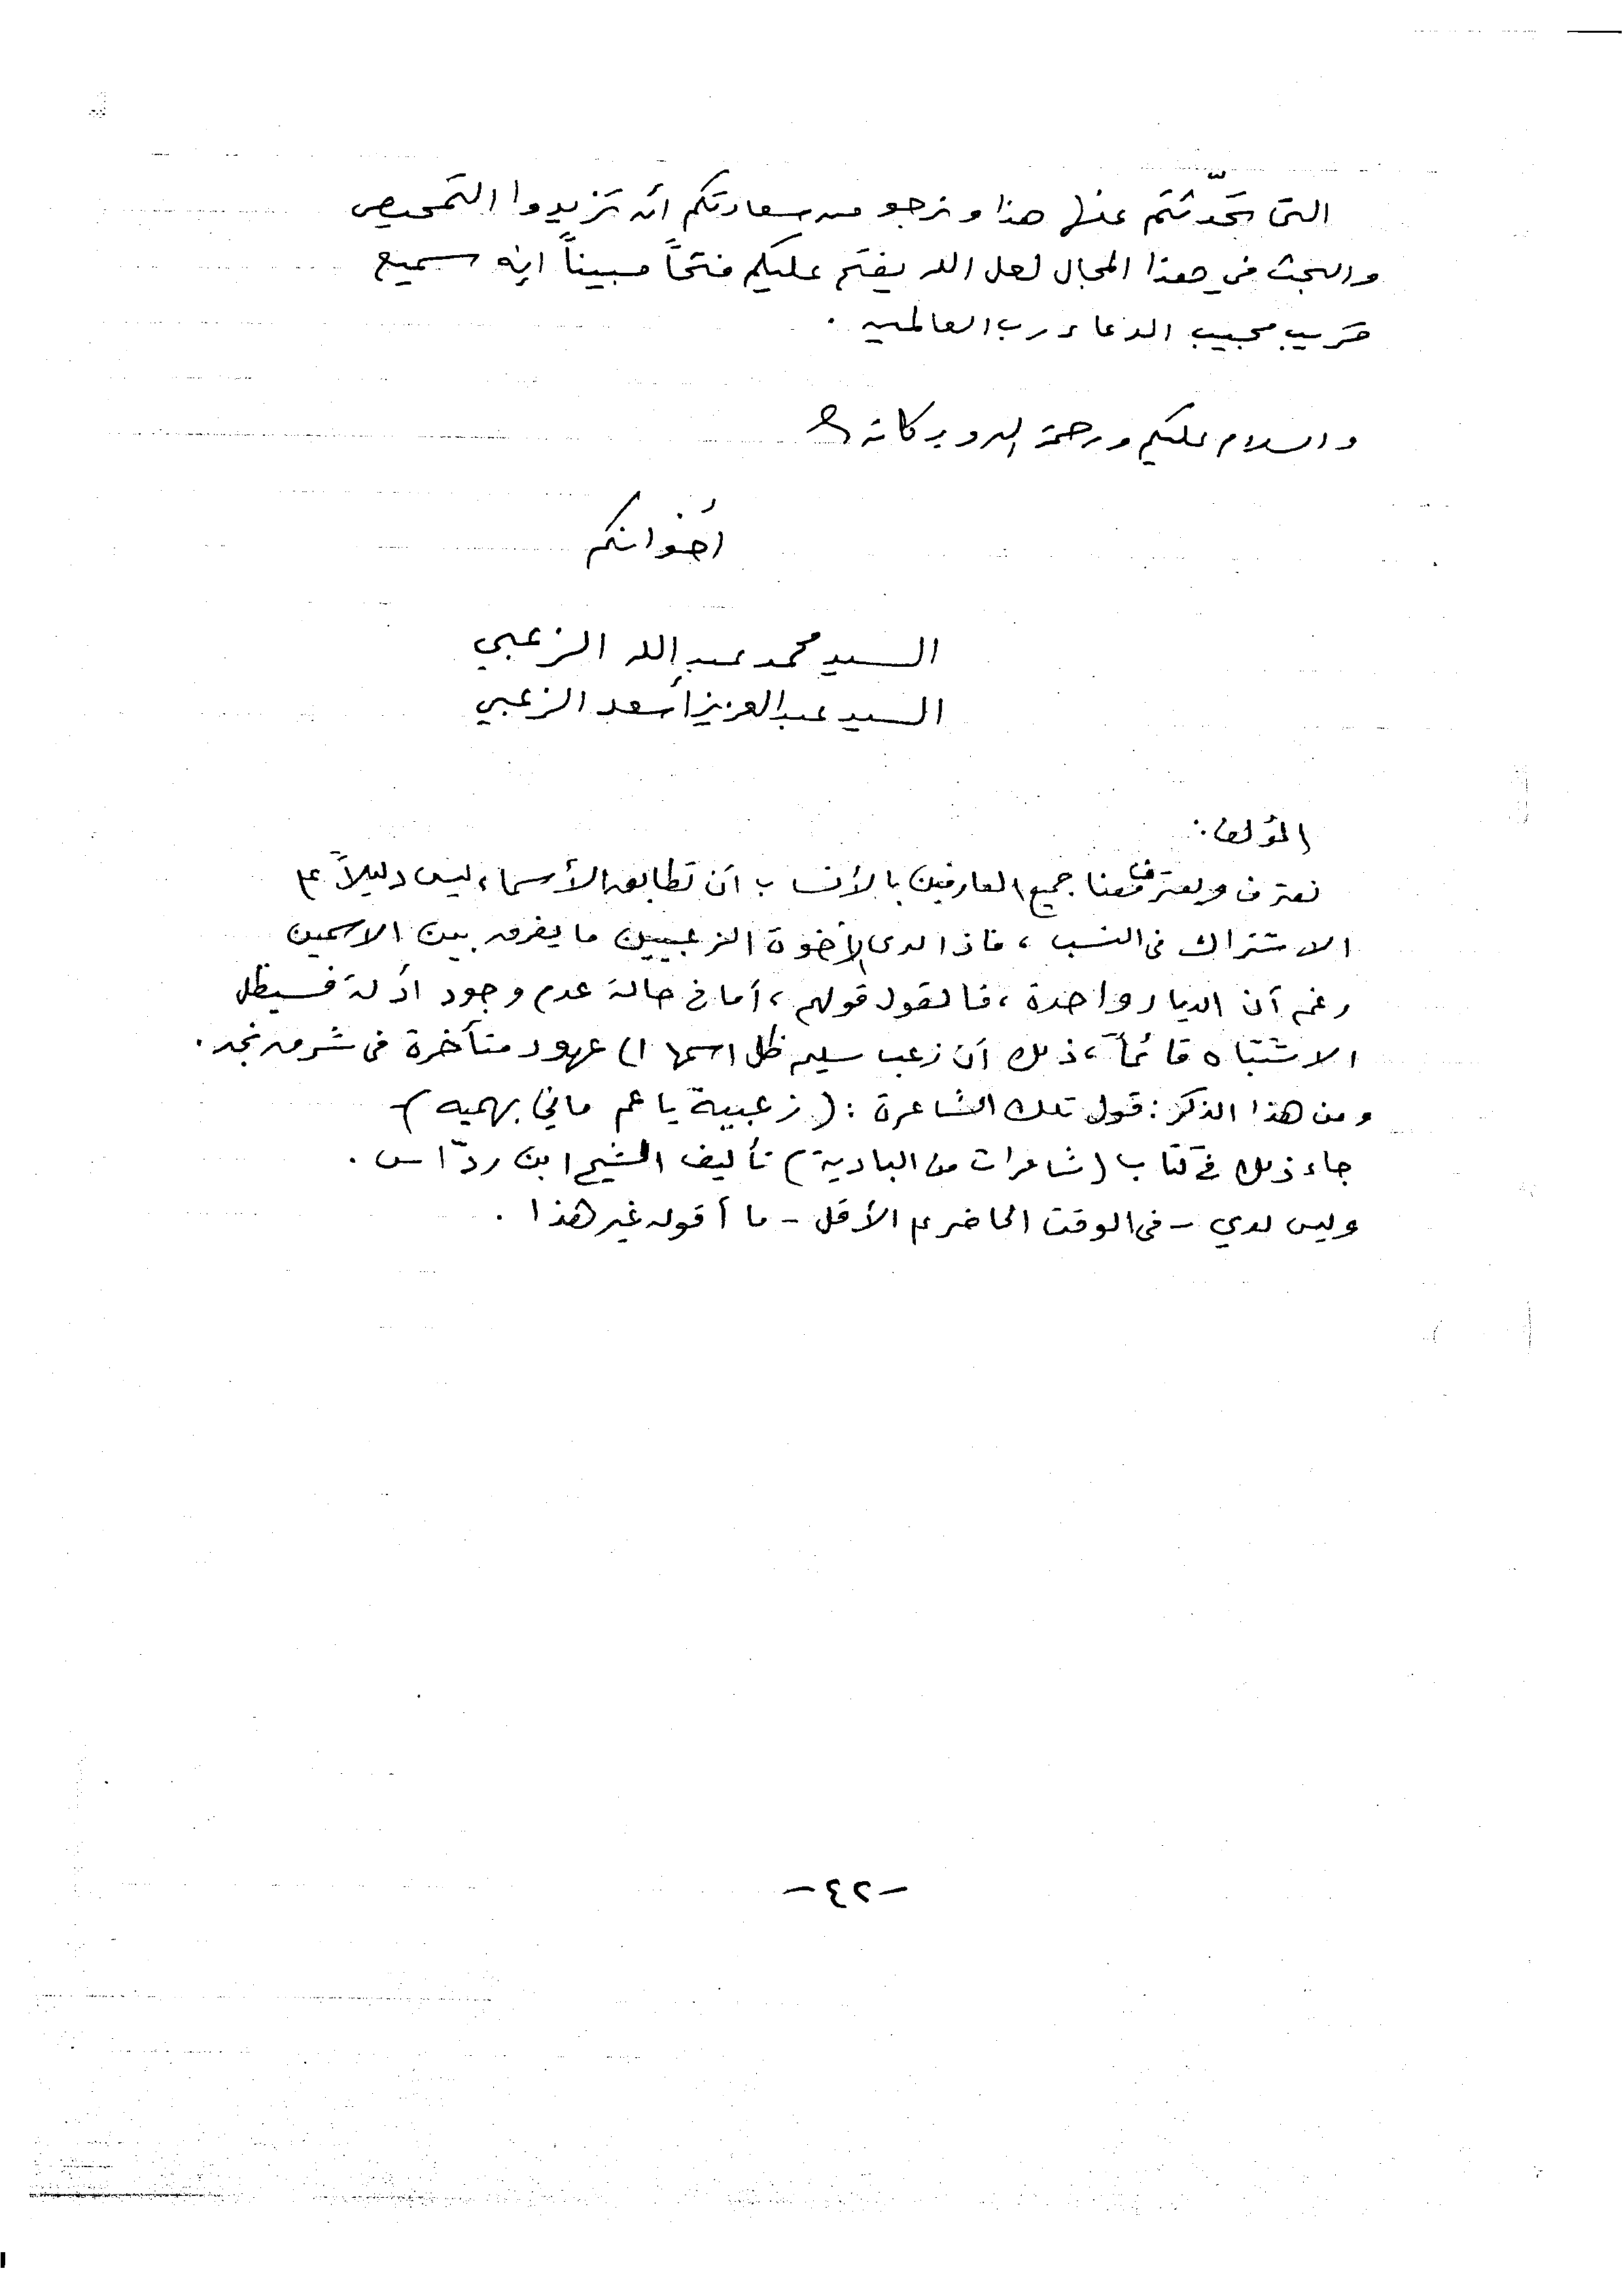 التى تحدّثتم عنها هذا و نرجو من سعادتكم أن تزيدوا التمحيص
والبحث في هذا المجال لعل الله يفتح عليكم فتحاً مبيناً انه سميع
قريب مجيب الدعاء رب العالمين .
والسلام عليكم ورحمة الله وبركاته
أخوانكم
السيد محمد عبد الله الزعبي
السيد عبد العزيز أسعد الزعبي
المؤلف :
نعترف ويعترف معنا جميع العارفين بالأنساب أن تطابق الأسماء ليس دليلاً على
الاشتراك في النسب ، فاذا لدى الإخوة الزعبيين ما يفرق بين الاسمين
رغم أن الديار واحدة ، فالقول قولهم ، أما في حالة عدم وجود أدلة فسيظل
الاشتباه قائماً ، ذلك أن زعب سليم ظل اسمها إلى عهود متأخرة في شرق نجد .
ومن هذا الذكر : قول تلك الشاعرة : ( زعبية يا عم ماني بهميه )
جاء ذلك في كتاب ( شاعرات من البادية ) تأليف الشيخ ابن ردّاس .
وليس لدي - في الوقت الحاضر على الأقل - ما أقوله غير هذا .
- ٤٢ -